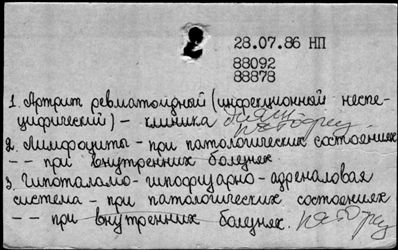 2
28.07.86 НП
88092
88878
1. Артрит ревматоидный (инфекционный неспе-
цифический) - клиника
2. Лимфоциты - при патологических состояниях
-- при внутренних болезнях.
3. Гипоталамо-гипофизарно-адреналовая
система - при патологических состояниях
-- при внутренних болезнях.